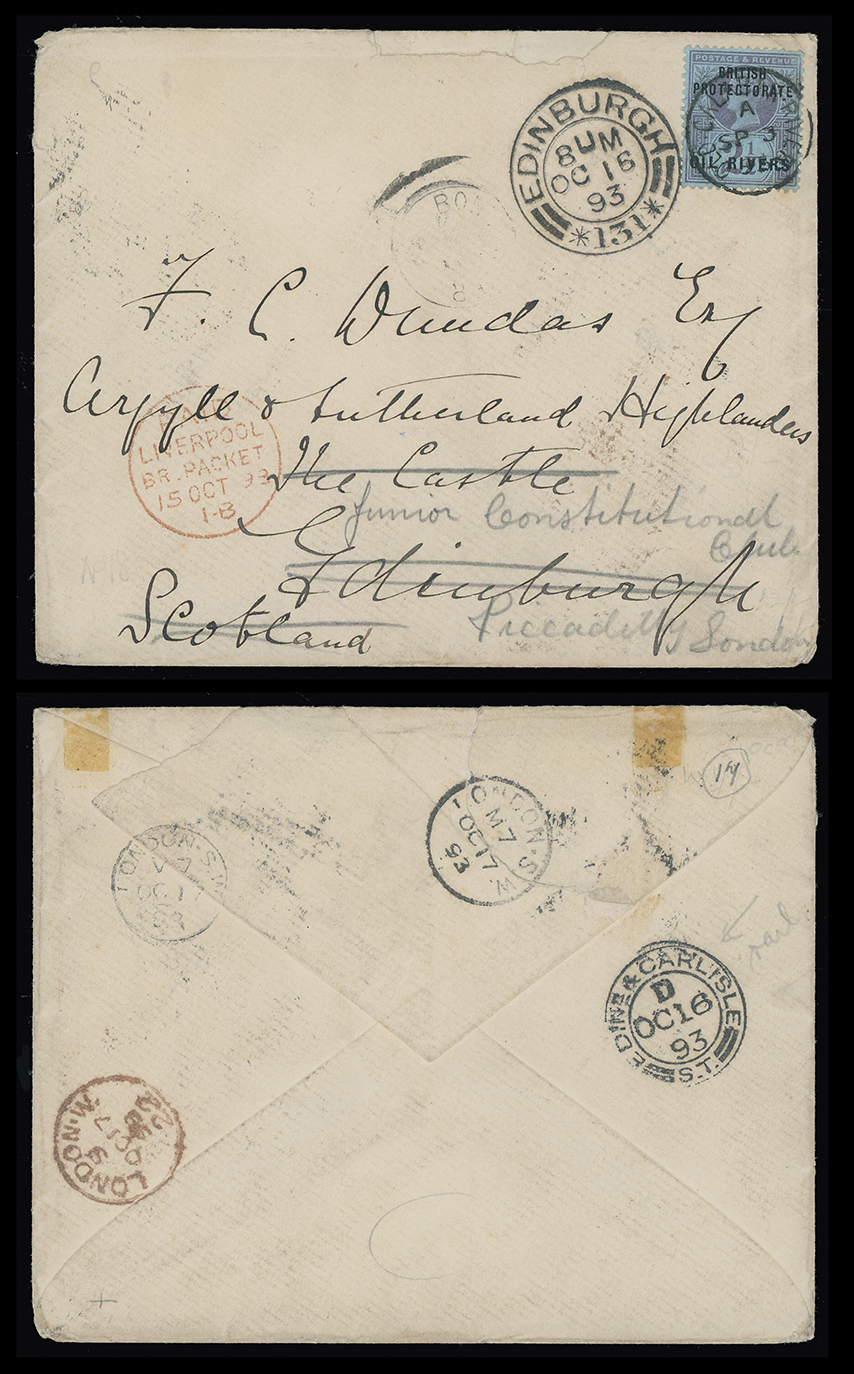 POSTAGE & REVENUE
BRITISH
PROTECTORATE
OIL RIVERS
A
SP 3
EDINBURGH
8 UM
OC 16
93
*131*
BO
F. C. Dundas Esq
Argyll & Sutherland Highlanders
The Castle
Edinburgh
Scotland
Junior Constitutional
Club
Piccadilly London
PAID
LIVERPOOL
BR. PACKET
15 OCT 93
1-B
14
LONDON.S.W
M 7
OC 17
93
LONDON.S.W
7
OC 1
EDINR & CARLISLE
D
OC 16
93
S.T.
LONDON.W
OC 17
93
22